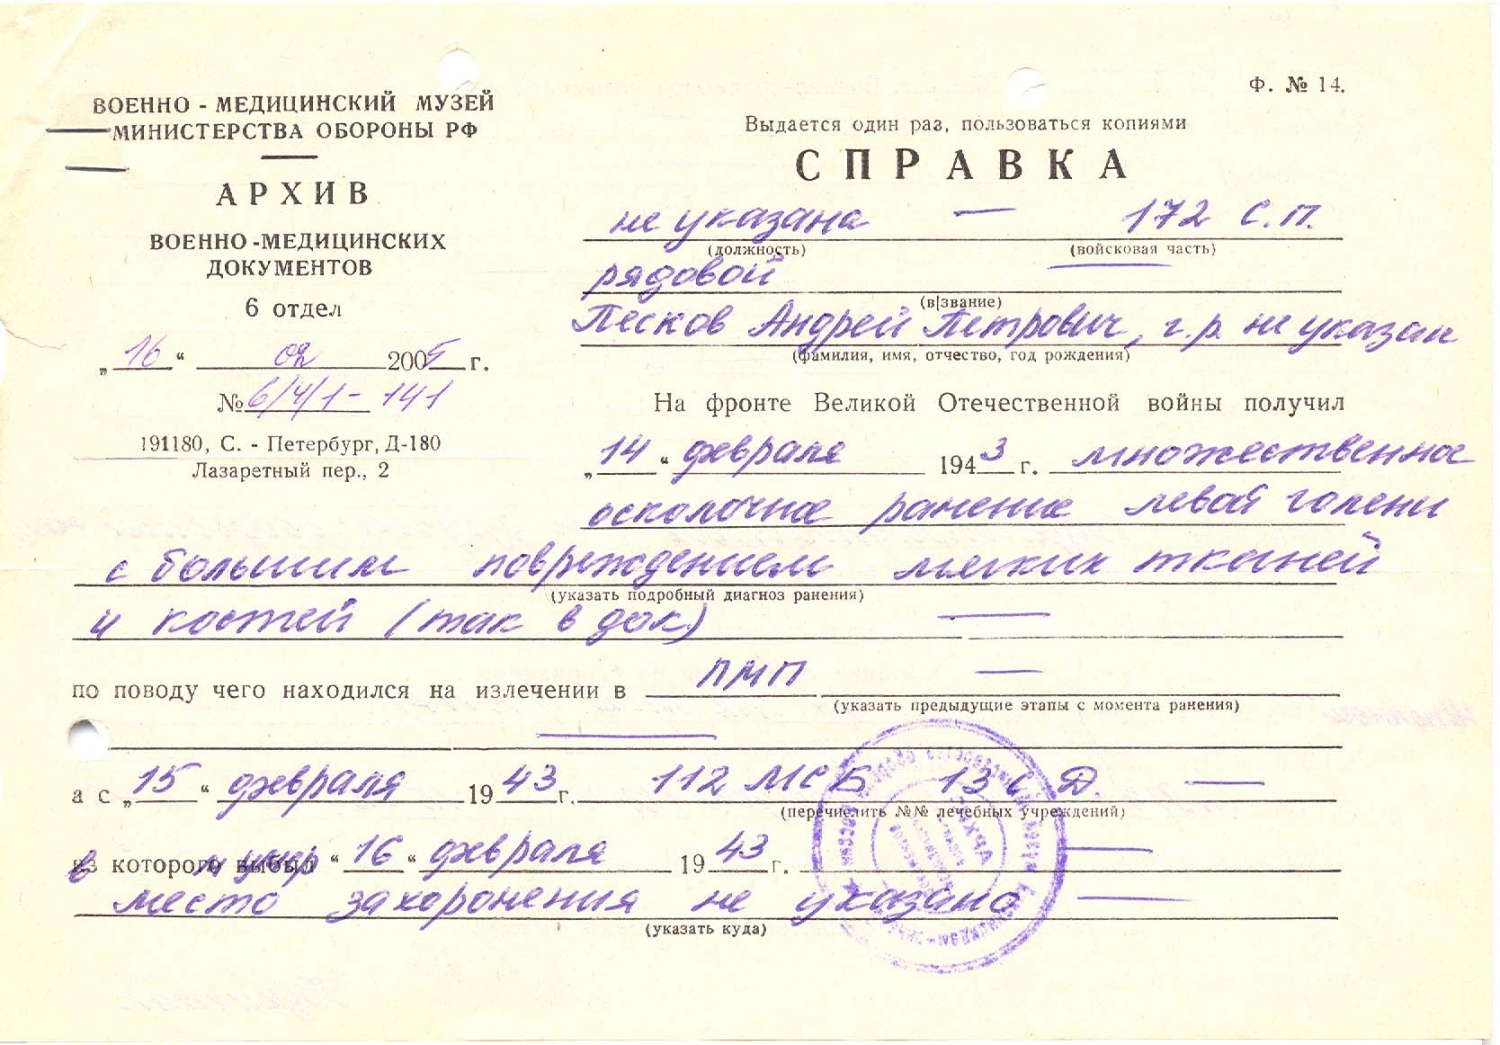 Ф. № 14.
ВОЕННО - МЕДИЦИНСКИЙ МУЗЕЙ
МИНИСТЕРСТВА ОБОРОНЫ РФ
АРХИВ
ВОЕННО-МЕДИЦИНСКИХ
ДОКУМЕНТОВ
6 отдел
„16“ 02 2005 г.
№ 6/4/1-141
191180, С. - Петербург, Д-180
Лазаретный пер., 2
Выдается один раз, пользоваться копиями
СПРАВКА
не указана — 172 С.П.
(должность) (войсковая часть)
рядовой
(в|звание)
Песков Андрей Петрович, г.р. не указан
(фамилия, имя, отчество, год рождения)
На фронте Великой Отечественной войны получил
„14“ февраля 1943 г. множественное
осколочное ранение левой голени
с большим повреждением мягких тканей
(указать подробный диагноз ранения)
и костей (так в док) —
по поводу чего находился на излечении в ПМП —
(указать предыдущие этапы с момента ранения)
—
а с „15“ февраля 1943 г. 112 МСБ 13 С Д —
(перечислить №№ лечебных учреждений)
в которого и умер “16“ февраля 1943 г. —
место захоронения не указано —
(указать куда)
АРХИВ